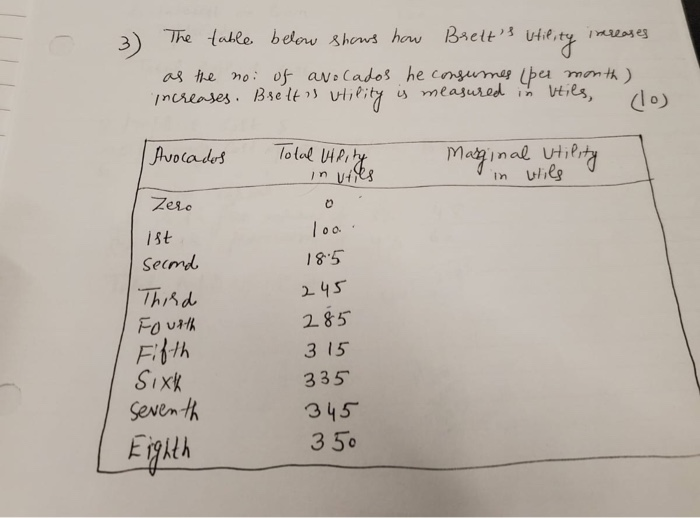 3) The table below shows how Brett's utility increases
as the no: of avocados he consumes (per month)
increases. Brett's utility is measured in utils, (10)
Avocados Total Utility Marginal utility
in utils in utils
Zero 0
1st 100
Second 185
Third 245
Fourth 285
Fifth 315
Sixth 335
Seventh 345
Eighth 350